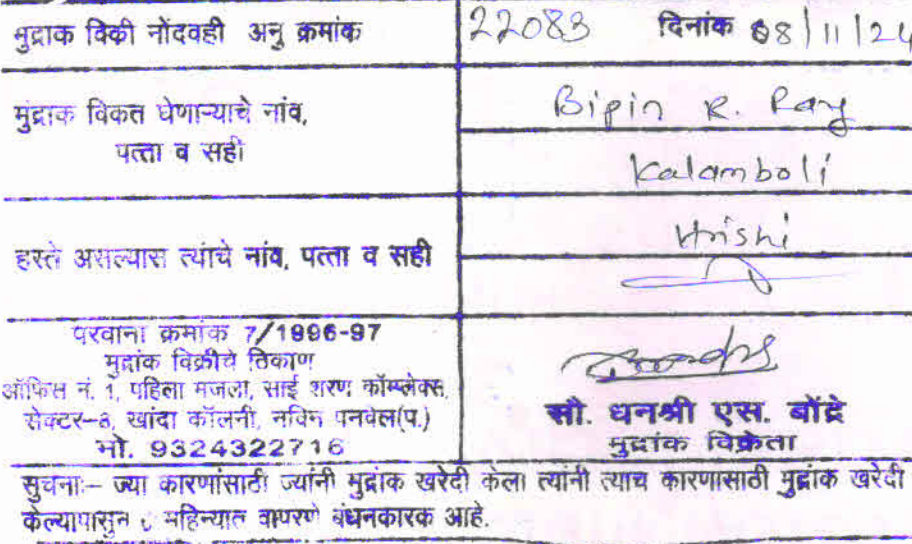 मुद्रांक विक्री नोंदवही अनु क्रमांक 22083 दिनांक 08/11/24
मुंद्राक विकत घेणाऱ्याचे नांव,
पत्ता व सही
Bipin R. Ray
Kalamboli
हस्ते असल्यास त्यांचे नांव, पत्ता व सही
Hrishi
परवाना क्रमांक 7/1996-97
मुद्रांक विक्रीचे ठिकाण
ऑफिस नं. 1, पहिला मजला, साई शरण कॉम्प्लेक्स,
सेक्टर-8, खांदा कॉलनी, नविन पनवेल(प.)
मो. 9324322716
सौ. धनश्री एस. बोंद्रे
मुद्रांक विक्रेता
सुचनाः– ज्या कारणांसाठी ज्यांनी मुद्रांक खरेदी केला त्यांनी त्याच कारणासाठी मुद्रांक खरेदी
केल्यापासुन महिन्यात वापरणे बंधनकारक आहे.